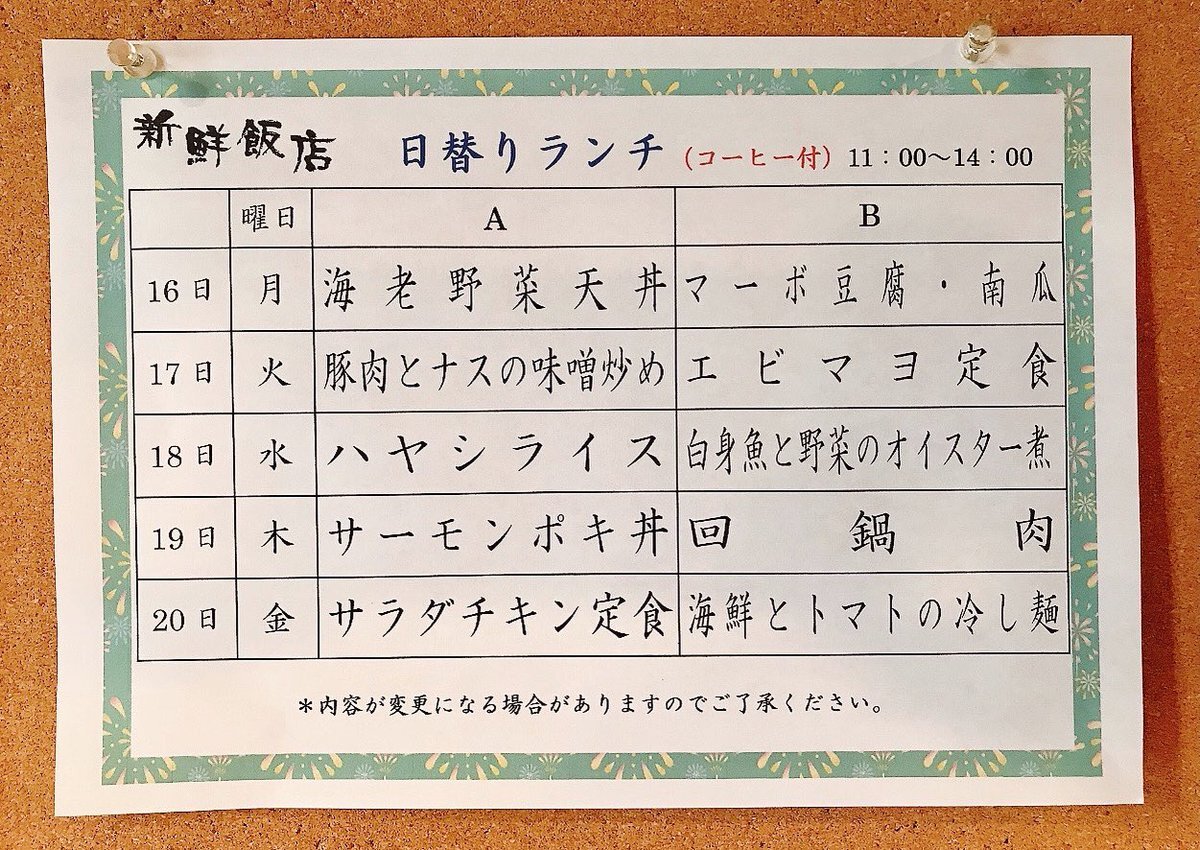 新鮮飯店 日替りランチ (コーヒー付) 11：00～14：00
曜日 A B
16日 月 海老野菜天丼 マーボ豆腐・南瓜
17日 火 豚肉とナスの味噌炒め エビマヨ定食
18日 水 ハヤシライス 白身魚と野菜のオイスター煮
19日 木 サーモンポキ丼 回鍋肉
20日 金 サラダチキン定食 海鮮とトマトの冷し麺
＊内容が変更になる場合がありますのでご了承ください。